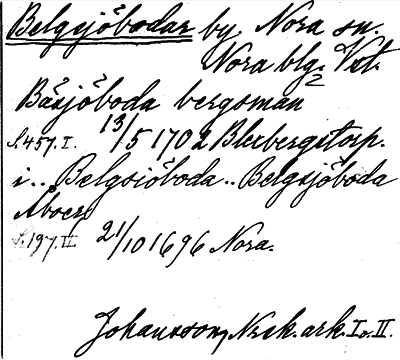 Belgsjöbodar by, Nora sn.
Nora blg. Vstl.
2
Bäsjöboda bergsman
s. 457. I. 13/5 1702 Blexbergstorp.
i.. Belgsiöboda.. Belgsjöboda
Åboer
s. 197. II 21/10 1696 Nora.
Johansson, Nrsk. ark. I o. II.